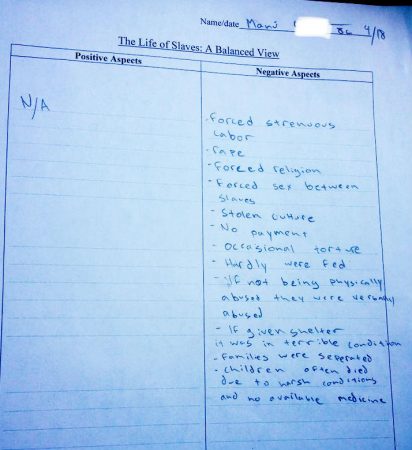 Name/date Manú 8c 4/18
The Life of Slaves: A Balanced View
Positive Aspects
Negative Aspects
N/A
- forced strenuous
labor
- rape
- Forced religion
- Forced sex between
slaves
- Stolen culture
- No payment
- Occasional torture
- Hardly were fed
- If not being physically
abused they were verbally
abused
- If given shelter
it was in terrible condition
- Families were seperated
- Children often died
due to harsh conditions
and no available medicine